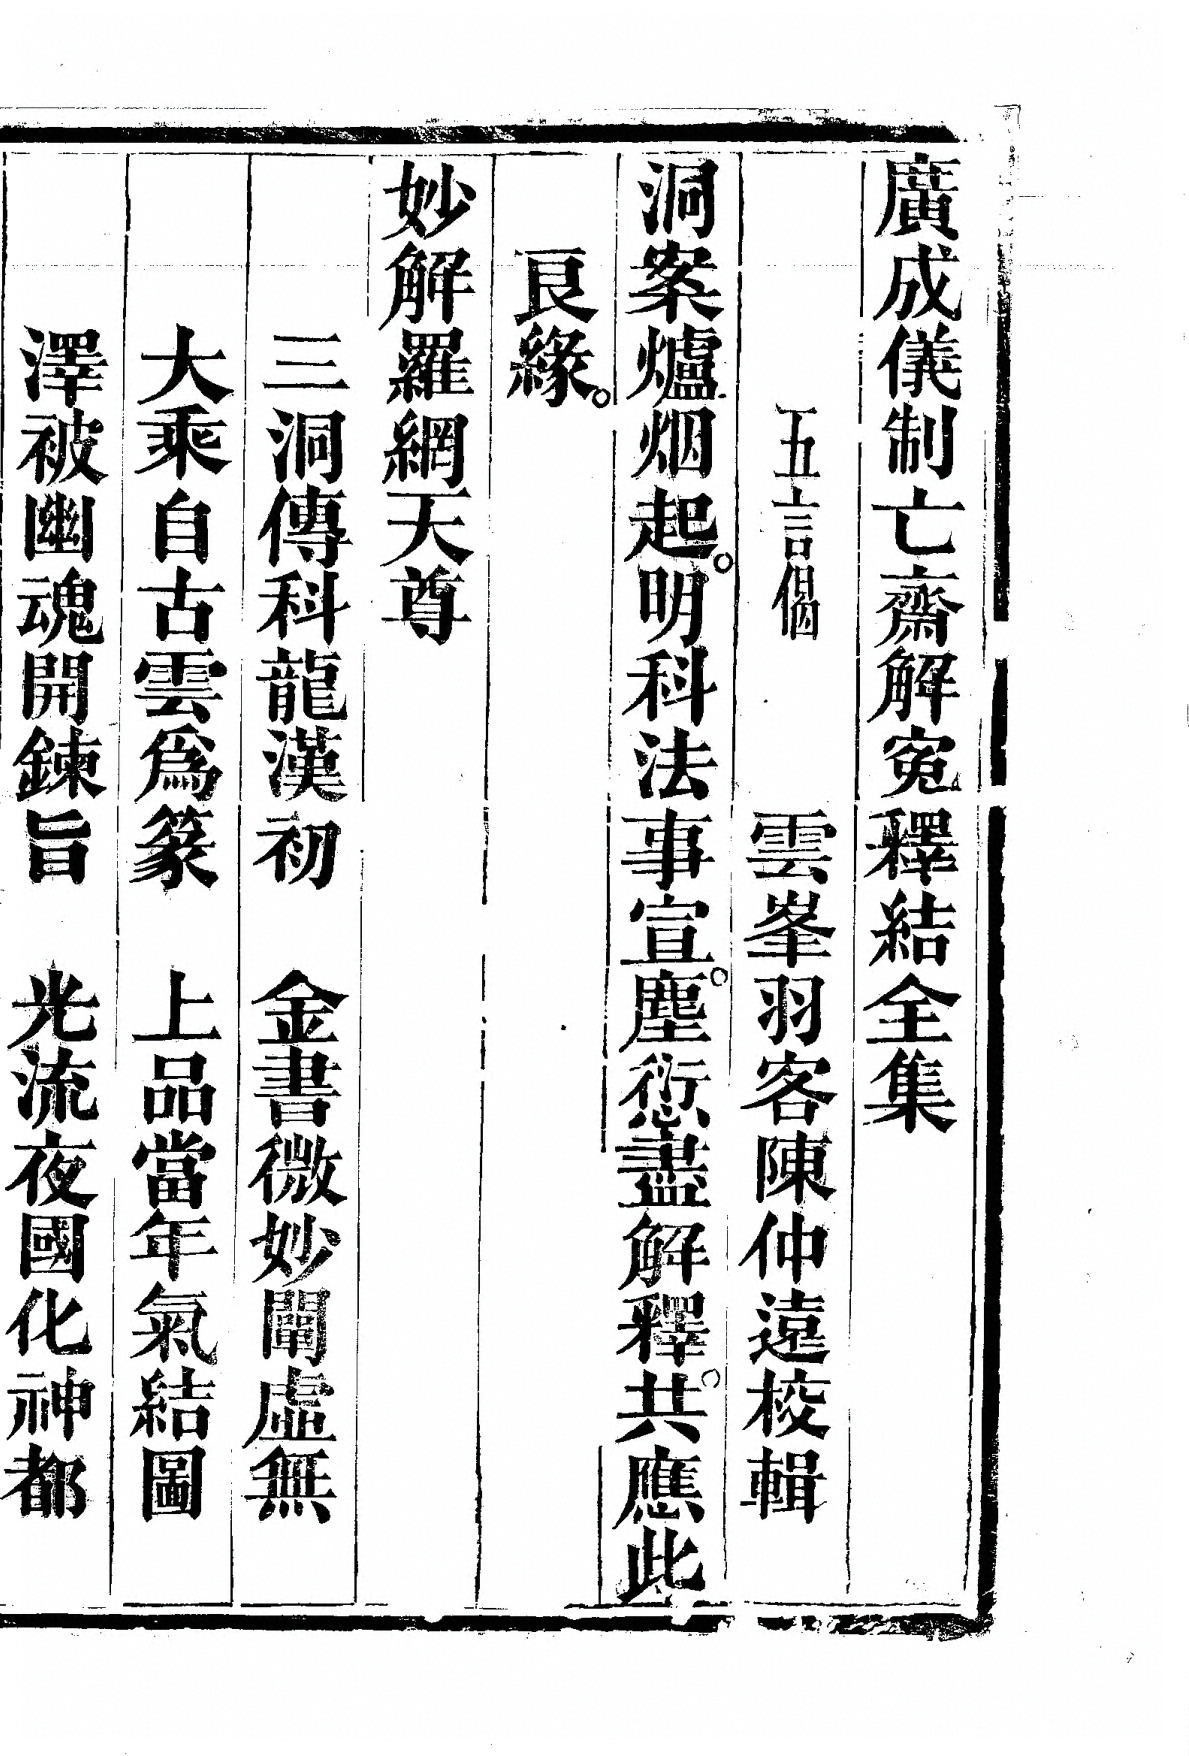 廣成儀制亡齋解寃釋結全集
五言偈　雲峯羽客陳仲遠校輯
洞案爐烟起。明科法事宣。塵愆盡解釋。共應此
良緣。
妙解羅網天尊
三洞傳科龍漢初　金書微妙闡虛無
大乘自古雲爲篆　上品當年氣結圖
澤被幽魂開鍊旨　光流夜國化神都